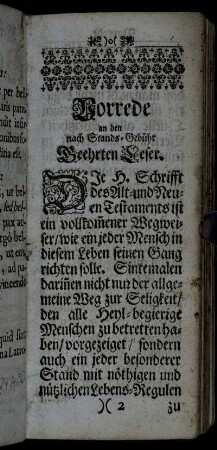 )o(
Vorrede
an den
nach Stands-Gebühr
Geehrten Leser.
DIe H. Schrifft
des Alt- und Neu-
en Testaments ist
ein vollkom̃ener Wegwei-
ser / wie ein jeder Mensch in
diesem Leben seinen Gang
richten solle. Sintemalen
dariñen nicht nur der allge-
meine Weg zur Seligkeit /
den alle Heyl-begierige
Menschen zu betretten ha-
ben / vorgezeiget / sondern
auch ein jeder besonderer
Stand mit nöthigen und
nützlichen Lebens-Regulen
)( 2 zu